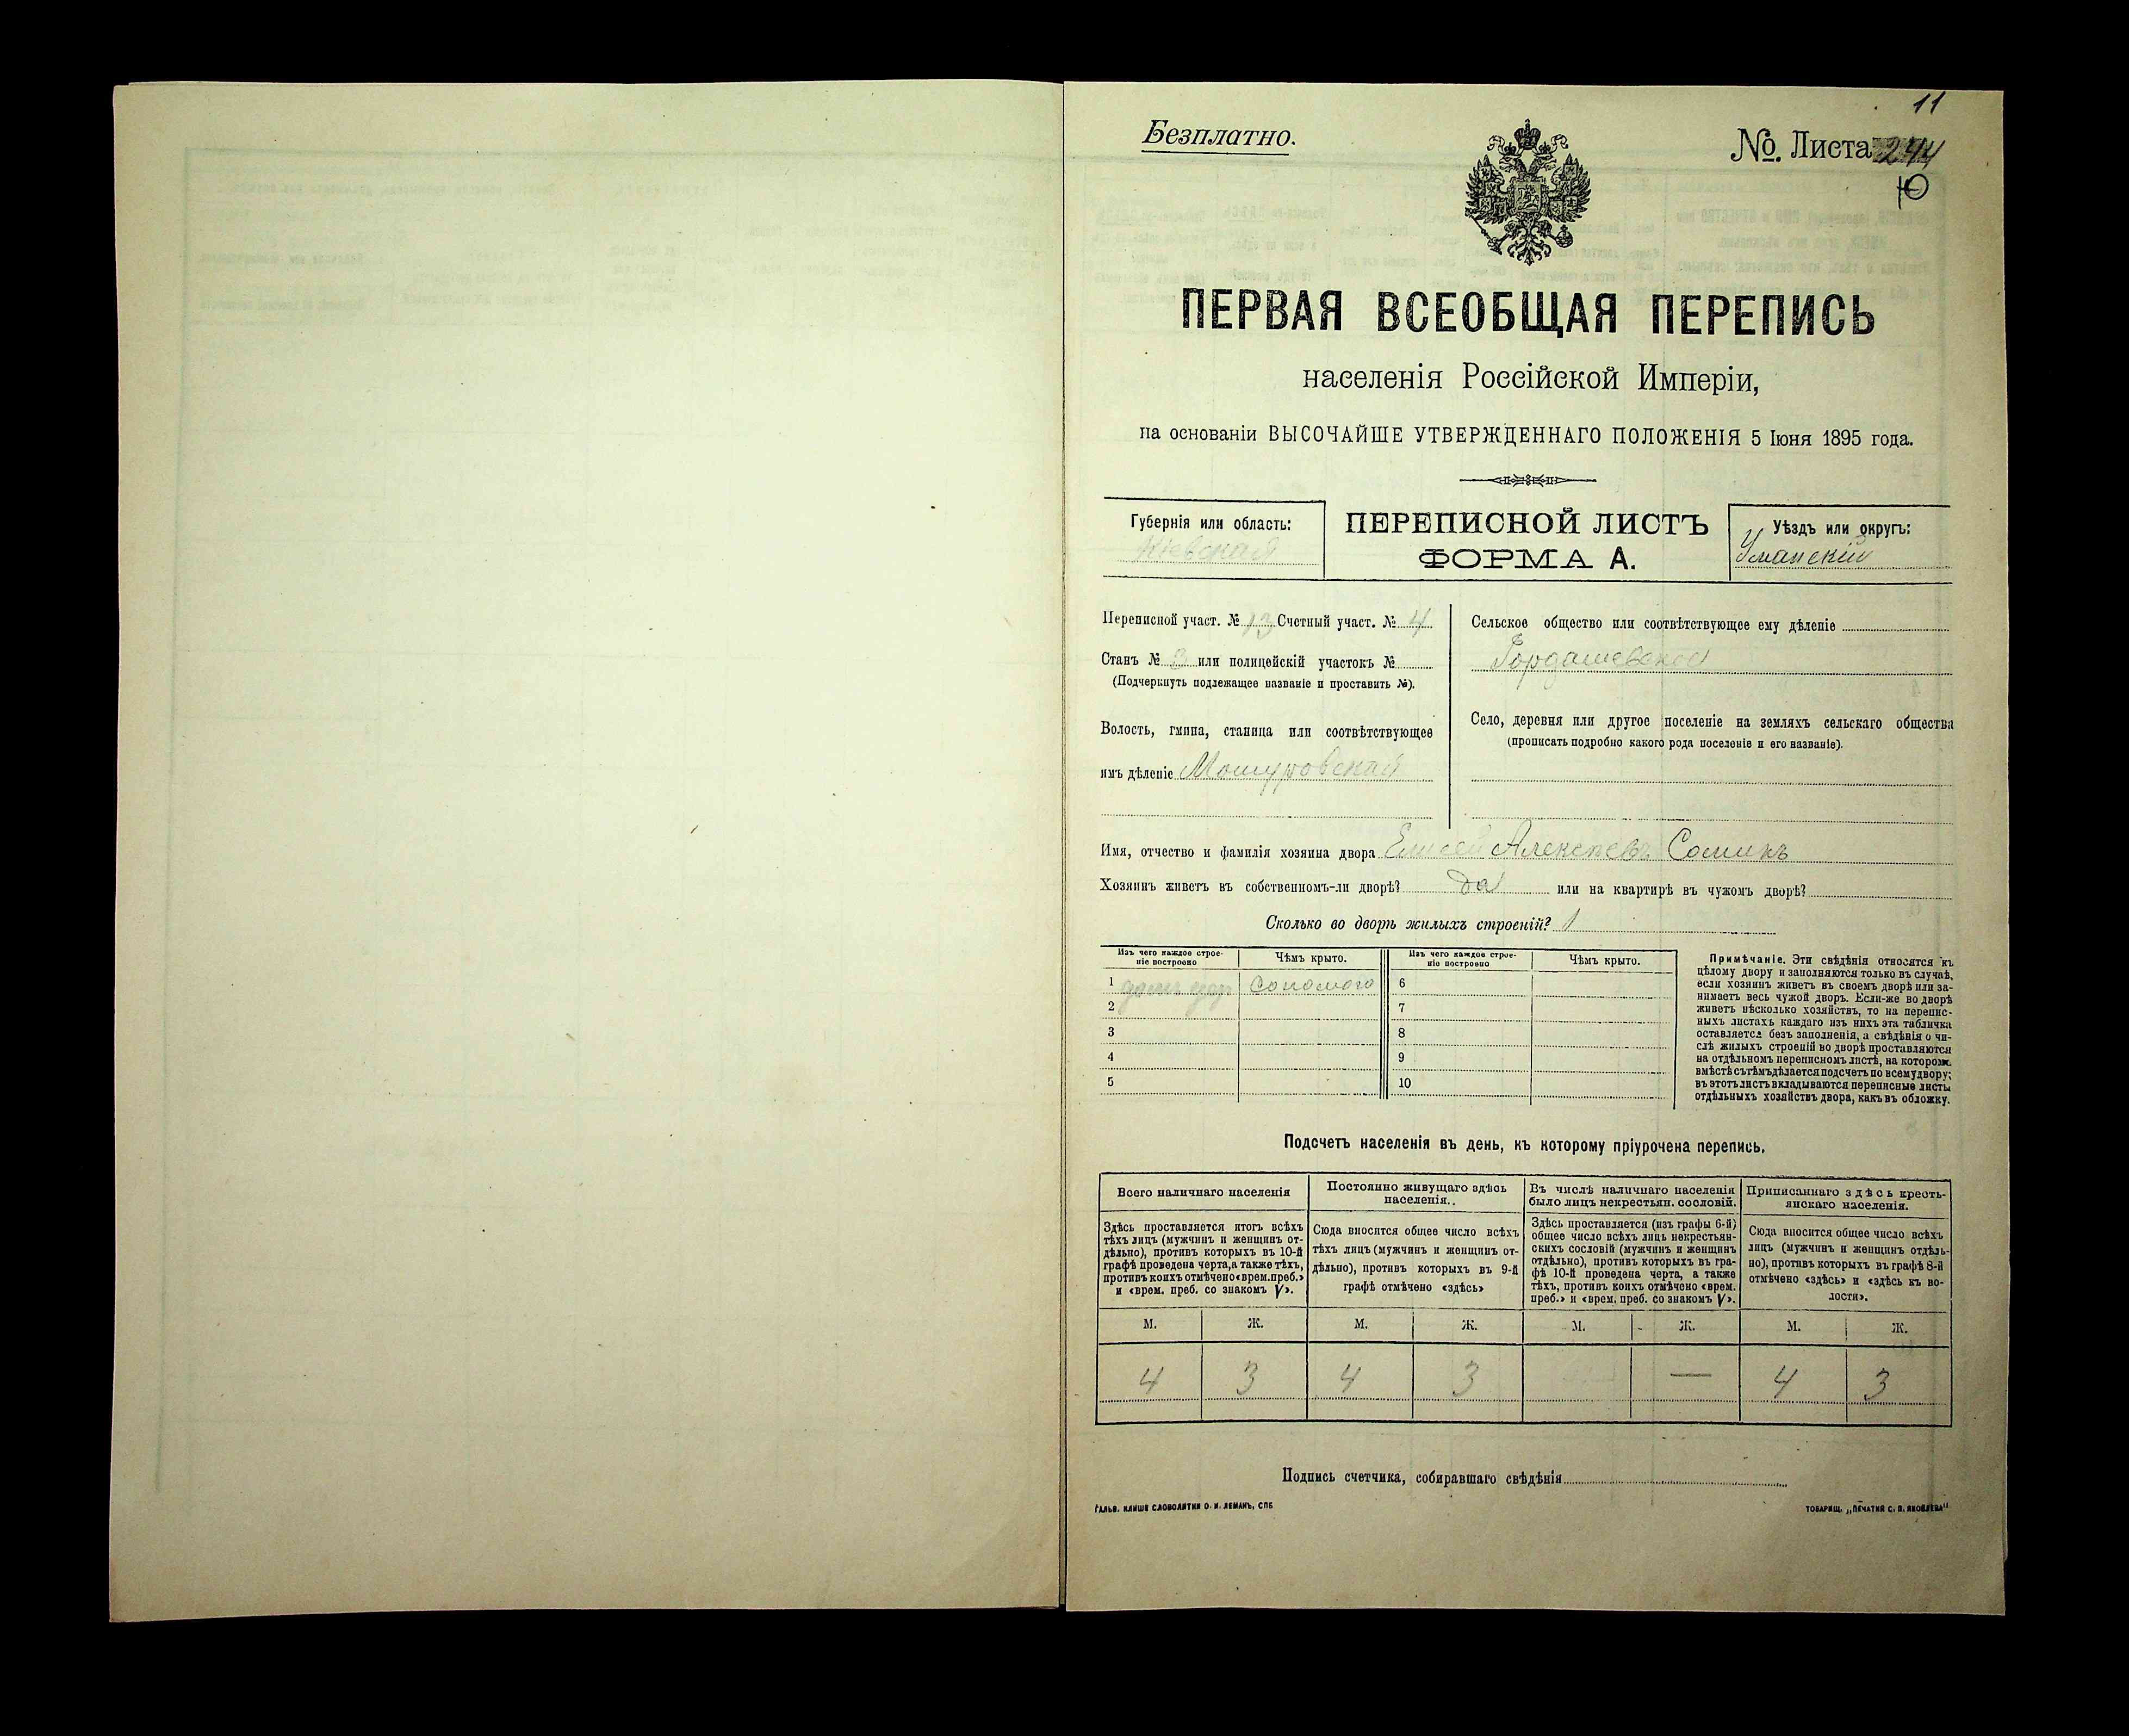 11
Безплатно.
№. Листа 244
ПЕРВАЯ ВСЕОБЩАЯ ПЕРЕПИСЬ
населенія Россійской Имперіи,
на основаніи ВЫСОЧАЙШЕ УТВЕРЖДЕННАГО ПОЛОЖЕНІЯ 5 Іюня 1895 года.
Губернія или область:
Кіевская
ПЕРЕПИСНОЙ ЛИСТЪ
ФОРМА А.
Уѣздъ или округъ:
Уманскій
Переписной участ. № 13 Счетный участ. № 4
Станъ № 3 или полицейскій участокъ №
(Подчеркнуть подлежащее названіе и проставить №).
Волость, гмина, станица или соотвѣтствующее
имъ дѣленіе Мошуровская
Сельское общество или соотвѣтствующее ему дѣленіе
Гордашевское
Село, деревня или другое поселеніе на земляхъ сельскаго общества
(прописать подробно какого рода поселеніе и его названіе).
Имя, отчество и фамилія хозяина двора Елисей Алексѣевъ Сомикъ
Хозяинъ живетъ въ собственномъ-ли дворѣ? Да или на квартирѣ въ чужомъ дворѣ?
Сколько во дворѣ жилыхъ строеній? 1
Изъ чего каждое строе-
ніе построено
Чѣмъ крыто.
Изъ чего каждое строе-
ніе построено
Чѣмъ крыто.
1 Соломого 6
2 7
3 8
4 9
5 10
Примѣчаніе. Эти свѣдѣнія относятся къ
цѣлому двору и заполняются только въ случаѣ,
если хозяинъ живетъ въ своемъ дворѣ или за-
нимаетъ весь чужой дворъ. Если-же во дворѣ
живетъ нѣсколько хозяйствъ, то на перепис-
ныхъ листахъ каждаго изъ нихъ эта табличка
оставляется безъ заполненія, а свѣдѣнія о чи-
слѣ жилыхъ строеній во дворѣ проставляются
на отдѣльномъ переписномъ листѣ, на которомъ
вмѣстѣ съ тѣмъ дѣлается подсчетъ по всему двору;
въ этотъ листъ вкладываются переписные листы
отдѣльныхъ хозяйствъ двора, какъ въ обложку.
Подсчетъ населенія въ день, къ которому пріурочена перепись.
Всего наличнаго населенія
Здѣсь проставляется итогъ всѣхъ
тѣхъ лицъ (мужчинъ и женщинъ от-
дѣльно), противъ которыхъ въ 10-й
графѣ проведена черта, а также тѣхъ,
противъ коихъ отмѣчено «врем. преб.»
и «врем. преб. со знакомъ V».
Постоянно живущаго здѣсь
населенія.
Сюда вносится общее число всѣхъ
тѣхъ лицъ (мужчинъ и женщинъ от-
дѣльно), противъ которыхъ въ 9-й
графѣ отмѣчено «здѣсь»
Въ числѣ наличнаго населенія
было лицъ некрестьян. сословій.
Здѣсь проставляется (изъ графы 6-й)
общее число всѣхъ лицъ некрестьян-
скихъ сословій (мужчинъ и женщинъ
отдѣльно), противъ которыхъ въ гра-
фѣ 10-й проведена черта, а также
тѣхъ, противъ коихъ отмѣчено «врем.
преб.» и «врем. преб. со знакомъ V».
Приписаннаго здѣсь кресть-
янскаго населенія.
Сюда вносится общее число всѣхъ
лицъ (мужчинъ и женщинъ отдѣль-
но), противъ которыхъ въ графѣ 8-й
отмѣчено «здѣсь» и «здѣсь къ во-
лости».
М. Ж. М. Ж. М. Ж. М. Ж.
4 3 4 3 — 4 3
Подпись счетчика, собиравшаго свѣдѣнія
ГАЛЬВ. КЛИШЕ СЛОВОЛИТНИ О. И. ЛЕМАНЪ, СПБ
ТОВАРИЩ. „ПЕЧАТНЯ С. П. ЯКОВЛЕВА“